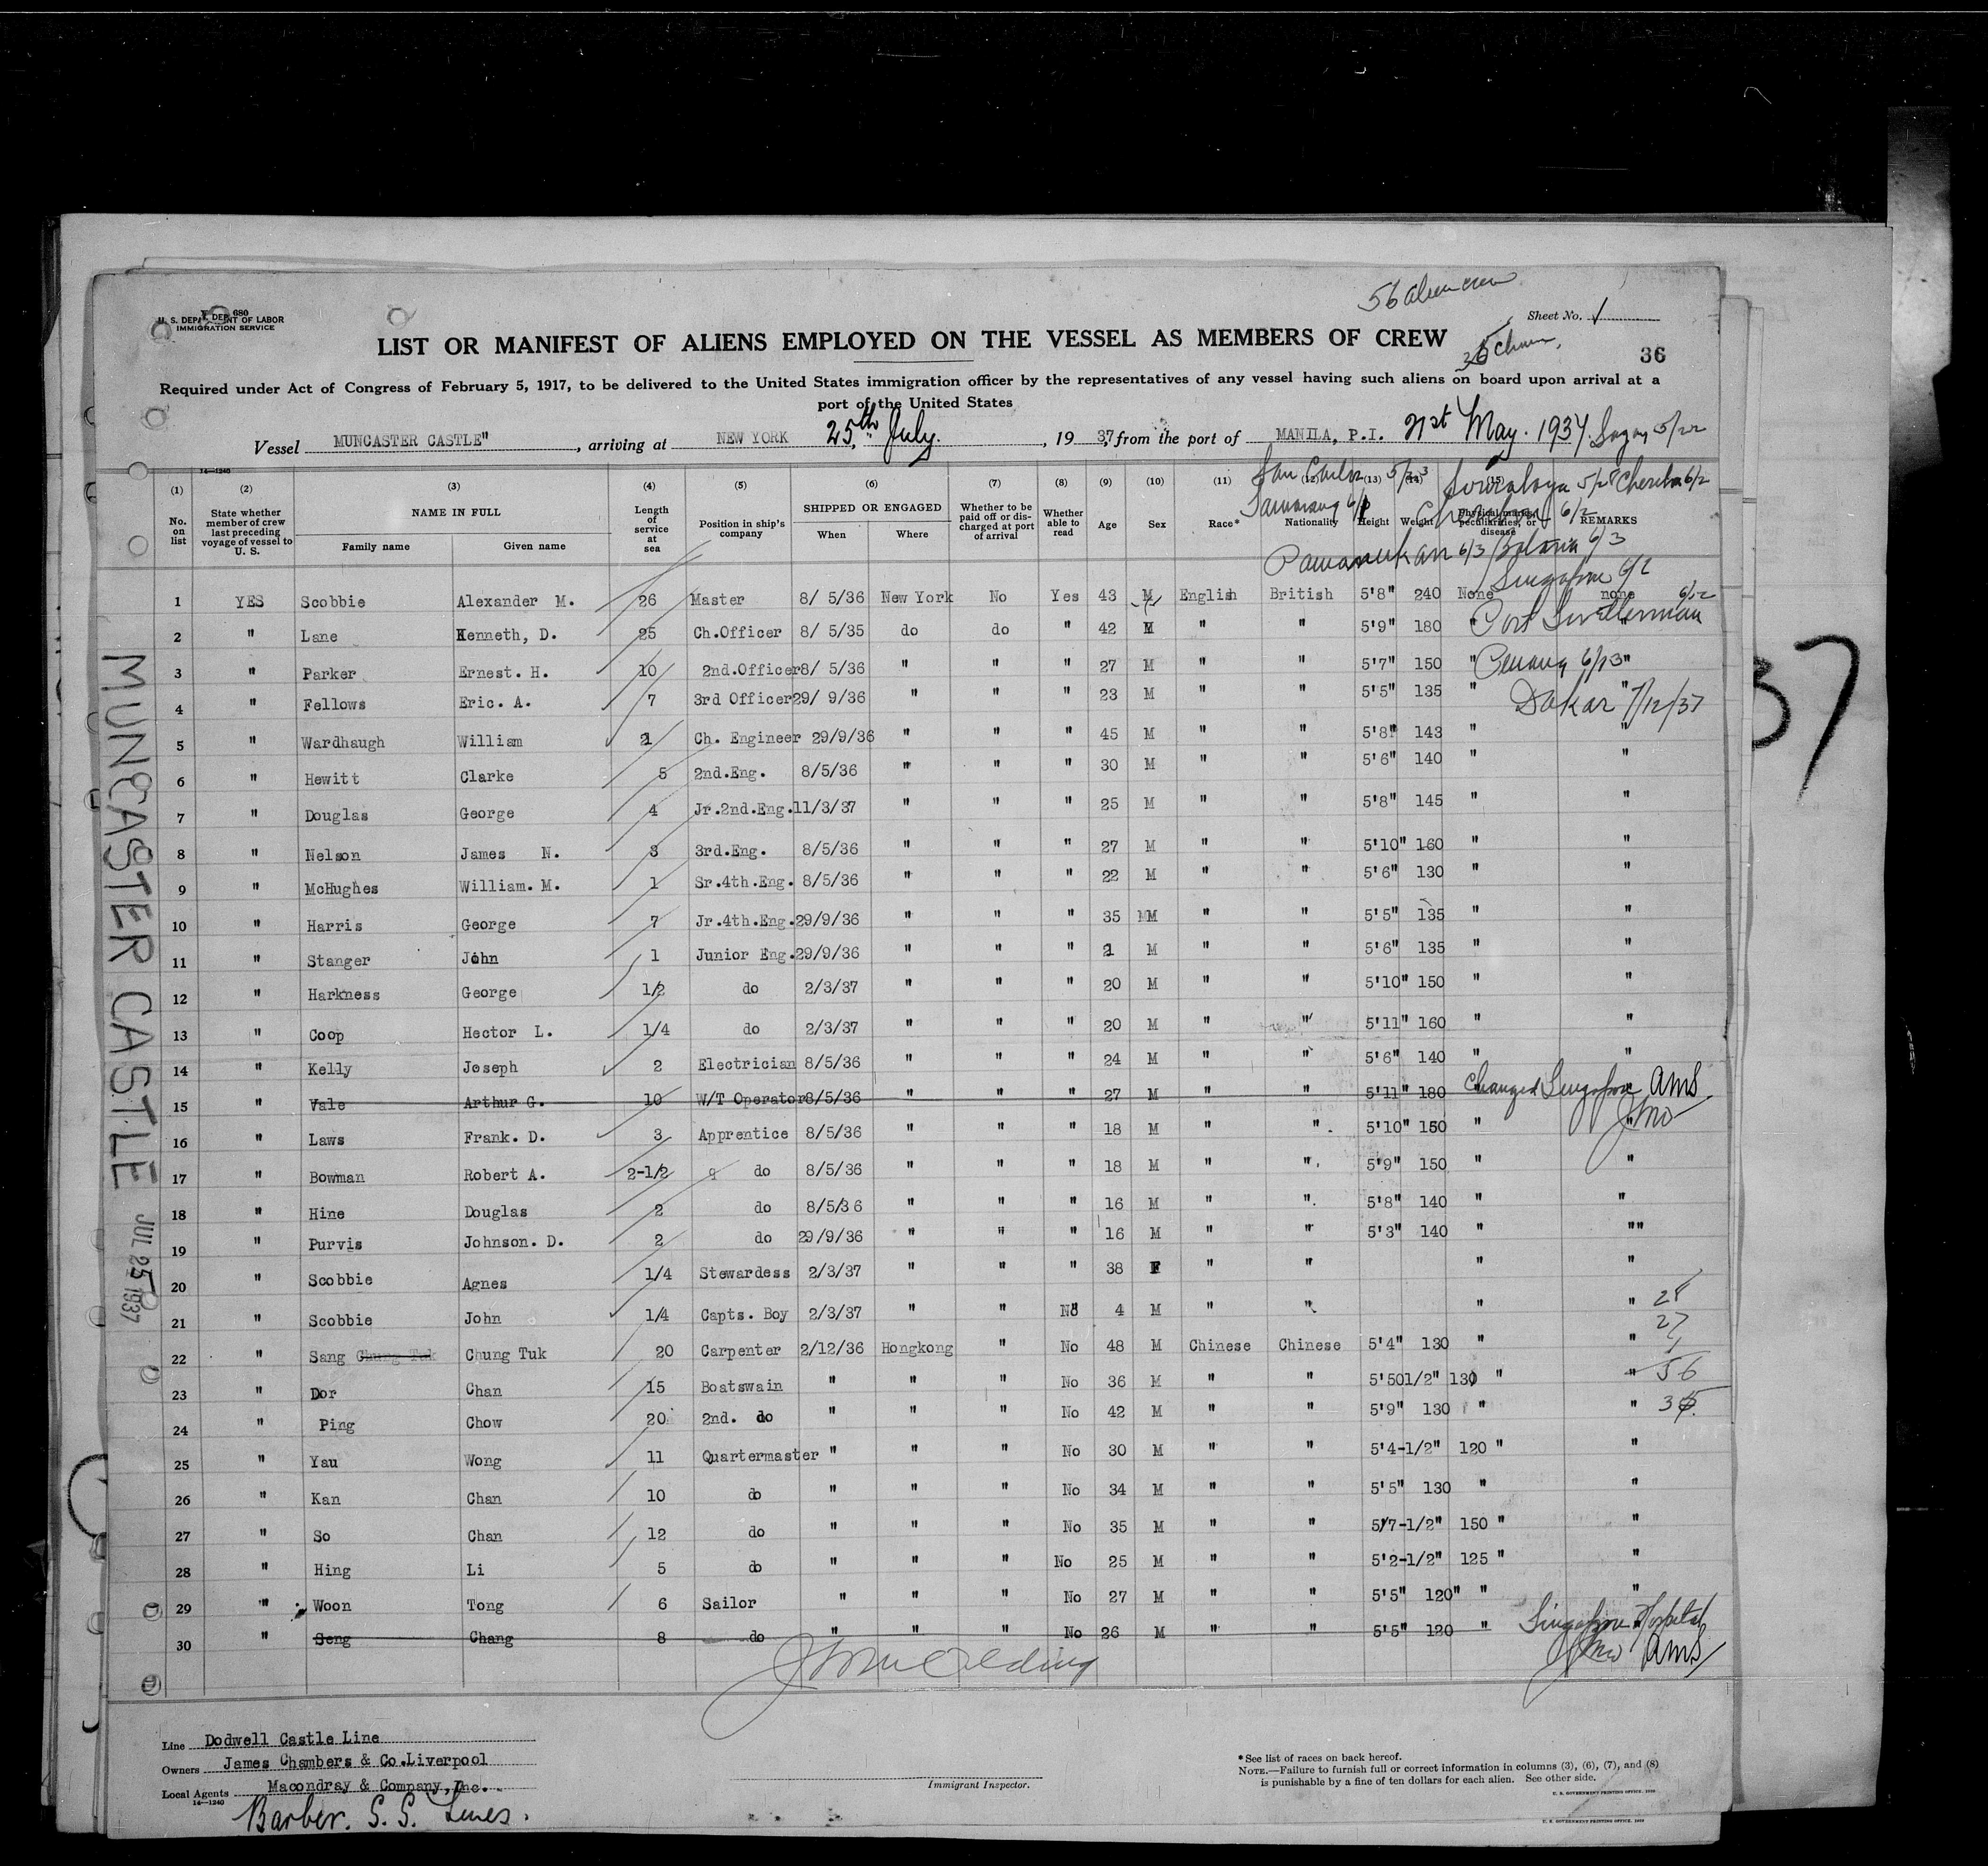 56 alien crew
U. S. DEPARTMENT OF LABOR
IMMIGRATION SERVICE
680
Sheet No.
LIST OR MANIFEST OF ALIENS EMPLOYED ON THE VESSEL AS MEMBERS OF CREW
36
Required under Act of Congress of February 5, 1917, to be delivered to the United States immigration officer by the representatives of any vessel having such aliens on board upon arrival at a
port of the United States
Vessel MUNCASTER CASTLE", arriving at NEW YORK 25th July., 1937, from the port of MANILA, P.I. 21st May. 1937. 5/22
14—1240
(1) (2) (3) (4) (5) (6) (7) (8) (9) (10) (11) (12) (13) (14) (15)
No. on list
State whether member of crew last preceding voyage of vessel to U. S.
NAME IN FULL
Family name Given name
Length of service at sea
Position in ship's company
SHIPPED OR ENGAGED
When Where
Whether to be paid off or discharged at port of arrival
Whether able to read
Age
Sex
Race*
Nationality
Height
Weight
Physical marks, peculiarities, or disease
REMARKS
Sourabaya 5/28 6/2
Samarang 6/1
Cheribon 6/2
Pamanukan 6/3 Batavia 6/3
Singapore
1 YES Scobbie Alexander M. 26 Master 8/ 5/36 New York No Yes 43 M English British 5'8" 240 None none
2 " Lane Kenneth, D. 25 Ch.Officer 8/ 5/35 do do " 42 M " " 5'9" 180 " Port Swettenham
3 " Parker Ernest. H. 10 2nd.Officer 8/ 5/36 " " " 27 M " " 5'7" 150 " Penang 6/13 "
4 " Fellows Eric. A. 7 3rd Officer 29/ 9/36 " " " 23 M " " 5'5" 135 " Dakar " 7/12/37
5 " Wardhaugh William Ch. Engineer 29/9/36 " " " 45 M " " 5'8" 143 " "
6 " Hewitt Clarke 5 2nd.Eng. 8/5/36 " " " 30 M " " 5'6" 140 " "
7 " Douglas George 4 Jr.2nd.Eng. 11/3/37 " " " 25 M " " 5'8" 145 " "
8 " Nelson James N. 3 3rd.Eng. 8/5/36 " " " 27 M " " 5'10" 160 " "
9 " McHughes William. M. 1 Sr.4th.Eng. 8/5/36 " " " 22 M " " 5'6" 130 " "
10 " Harris George 7 Jr.4th.Eng. 29/9/36 " " " 35 MM " " 5'5" 135 " "
11 " Stanger John 1 Junior Eng. 29/9/36 " " " M " " 5'6" 135 " "
12 " Harkness George 1/2 do 2/3/37 " " " 20 M " " 5'10" 150 " "
13 " Coop Hector L. 1/4 do 2/3/37 " " " 20 M " " 5'11" 160 " "
14 " Kelly Joseph 2 Electrician 8/5/36 " " " 24 M " " 5'6" 140 " "
15 " Vale Arthur G. 10 W/T Operator 8/5/36 " " " 27 M " " 5'11" 180 Changed Singapore AMS
16 " Laws Frank. D. 3 Apprentice 8/5/36 " " " 18 M " " 5'10" 150 " "
17 " Bowman Robert A. 2-1/2 q do 8/5/36 " " " 18 M " " 5'9" 150 " "
18 " Hine Douglas 2 do 8/5/36 " " " 16 M " " 5'8" 140 " "
19 " Purvis Johnson. D. 2 do 29/9/36 " " " 16 M " " 5'3" 140 " ""
20 " Scobbie Agnes 1/4 Stewardess 2/3/37 " " " 38 F " " " "
21 " Scobbie John 1/4 Capts. Boy 2/3/37 " " No 4 M " " " " 28
27
22 " Sang Chung Tuk Chung Tuk 20 Carpenter 2/12/36 Hongkong " No 48 M Chinese Chinese 5'4" 130 " " 1
23 " Dor Chan 15 Boatswain " " " No 36 M " " 5'501/2" 130 " " 56
24 " Ping Chow 20 2nd. do " " " No 42 M " " 5'9" 130 " "
25 " Yau Wong 11 Quartermaster " " " No 30 M " " 5'4-1/2" 120 " "
26 " Kan Chan 10 do " " " No 34 M " " 5'5" 130 " "
27 " So Chan 12 do " " " No 35 M " " 5/7-1/2" 150 " "
28 " Hing Li 5 do " " " No 25 M " " 5'2-1/2" 125 " "
29 " Woon Tong 6 Sailor " " " No 27 M " " 5'5" 120" " "
30 " Seng Chang 8 do " " " No 26 M " " 5'5" 120 " Singapore Hospital
AMS
MUNCASTER CASTLE JUL 25 1937
37
Line Dodwell Castle Line
Owners James Chambers & Co.Liverpool
Local Agents Macondray & Company, Inc.
14—1240
Barber. S.S. Lines.
Immigrant Inspector.
* See list of races on back hereof.
NOTE.—Failure to furnish full or correct information in columns (3), (6), (7), and (8)
is punishable by a fine of ten dollars for each alien. See other side.
U. S. GOVERNMENT PRINTING OFFICE.
U. S. GOVERNMENT PRINTING OFFICE.